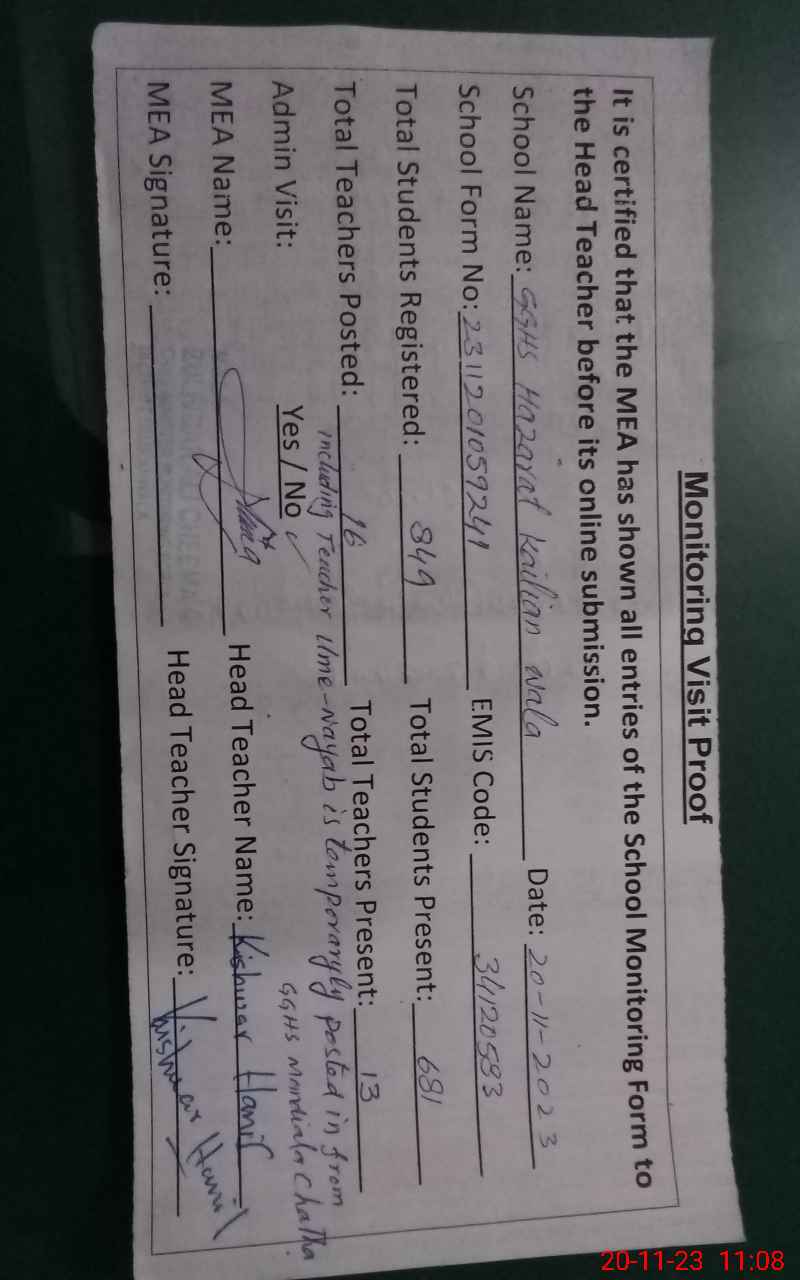 Monitoring Visit Proof
It is certified that the MEA has shown all entries of the School Monitoring Form to
the Head Teacher before its online submission.
School Name: GGHS Hazarat Kailian wala Date: 20-11-2023
School Form No: 2311201059241 EMIS Code: 34120583
Total Students Registered: 849 Total Students Present: 681
Total Teachers Posted: 16 Total Teachers Present: 13
including Teacher Ume-Nayab is temporaryly posted in from
GGHS Mandiala Chatha
Admin Visit: Yes / No ✓
MEA Name: Head Teacher Name: Kishwar Hanif
MEA Signature: Head Teacher Signature: Kishwar Hanif
20-11-23 11:08